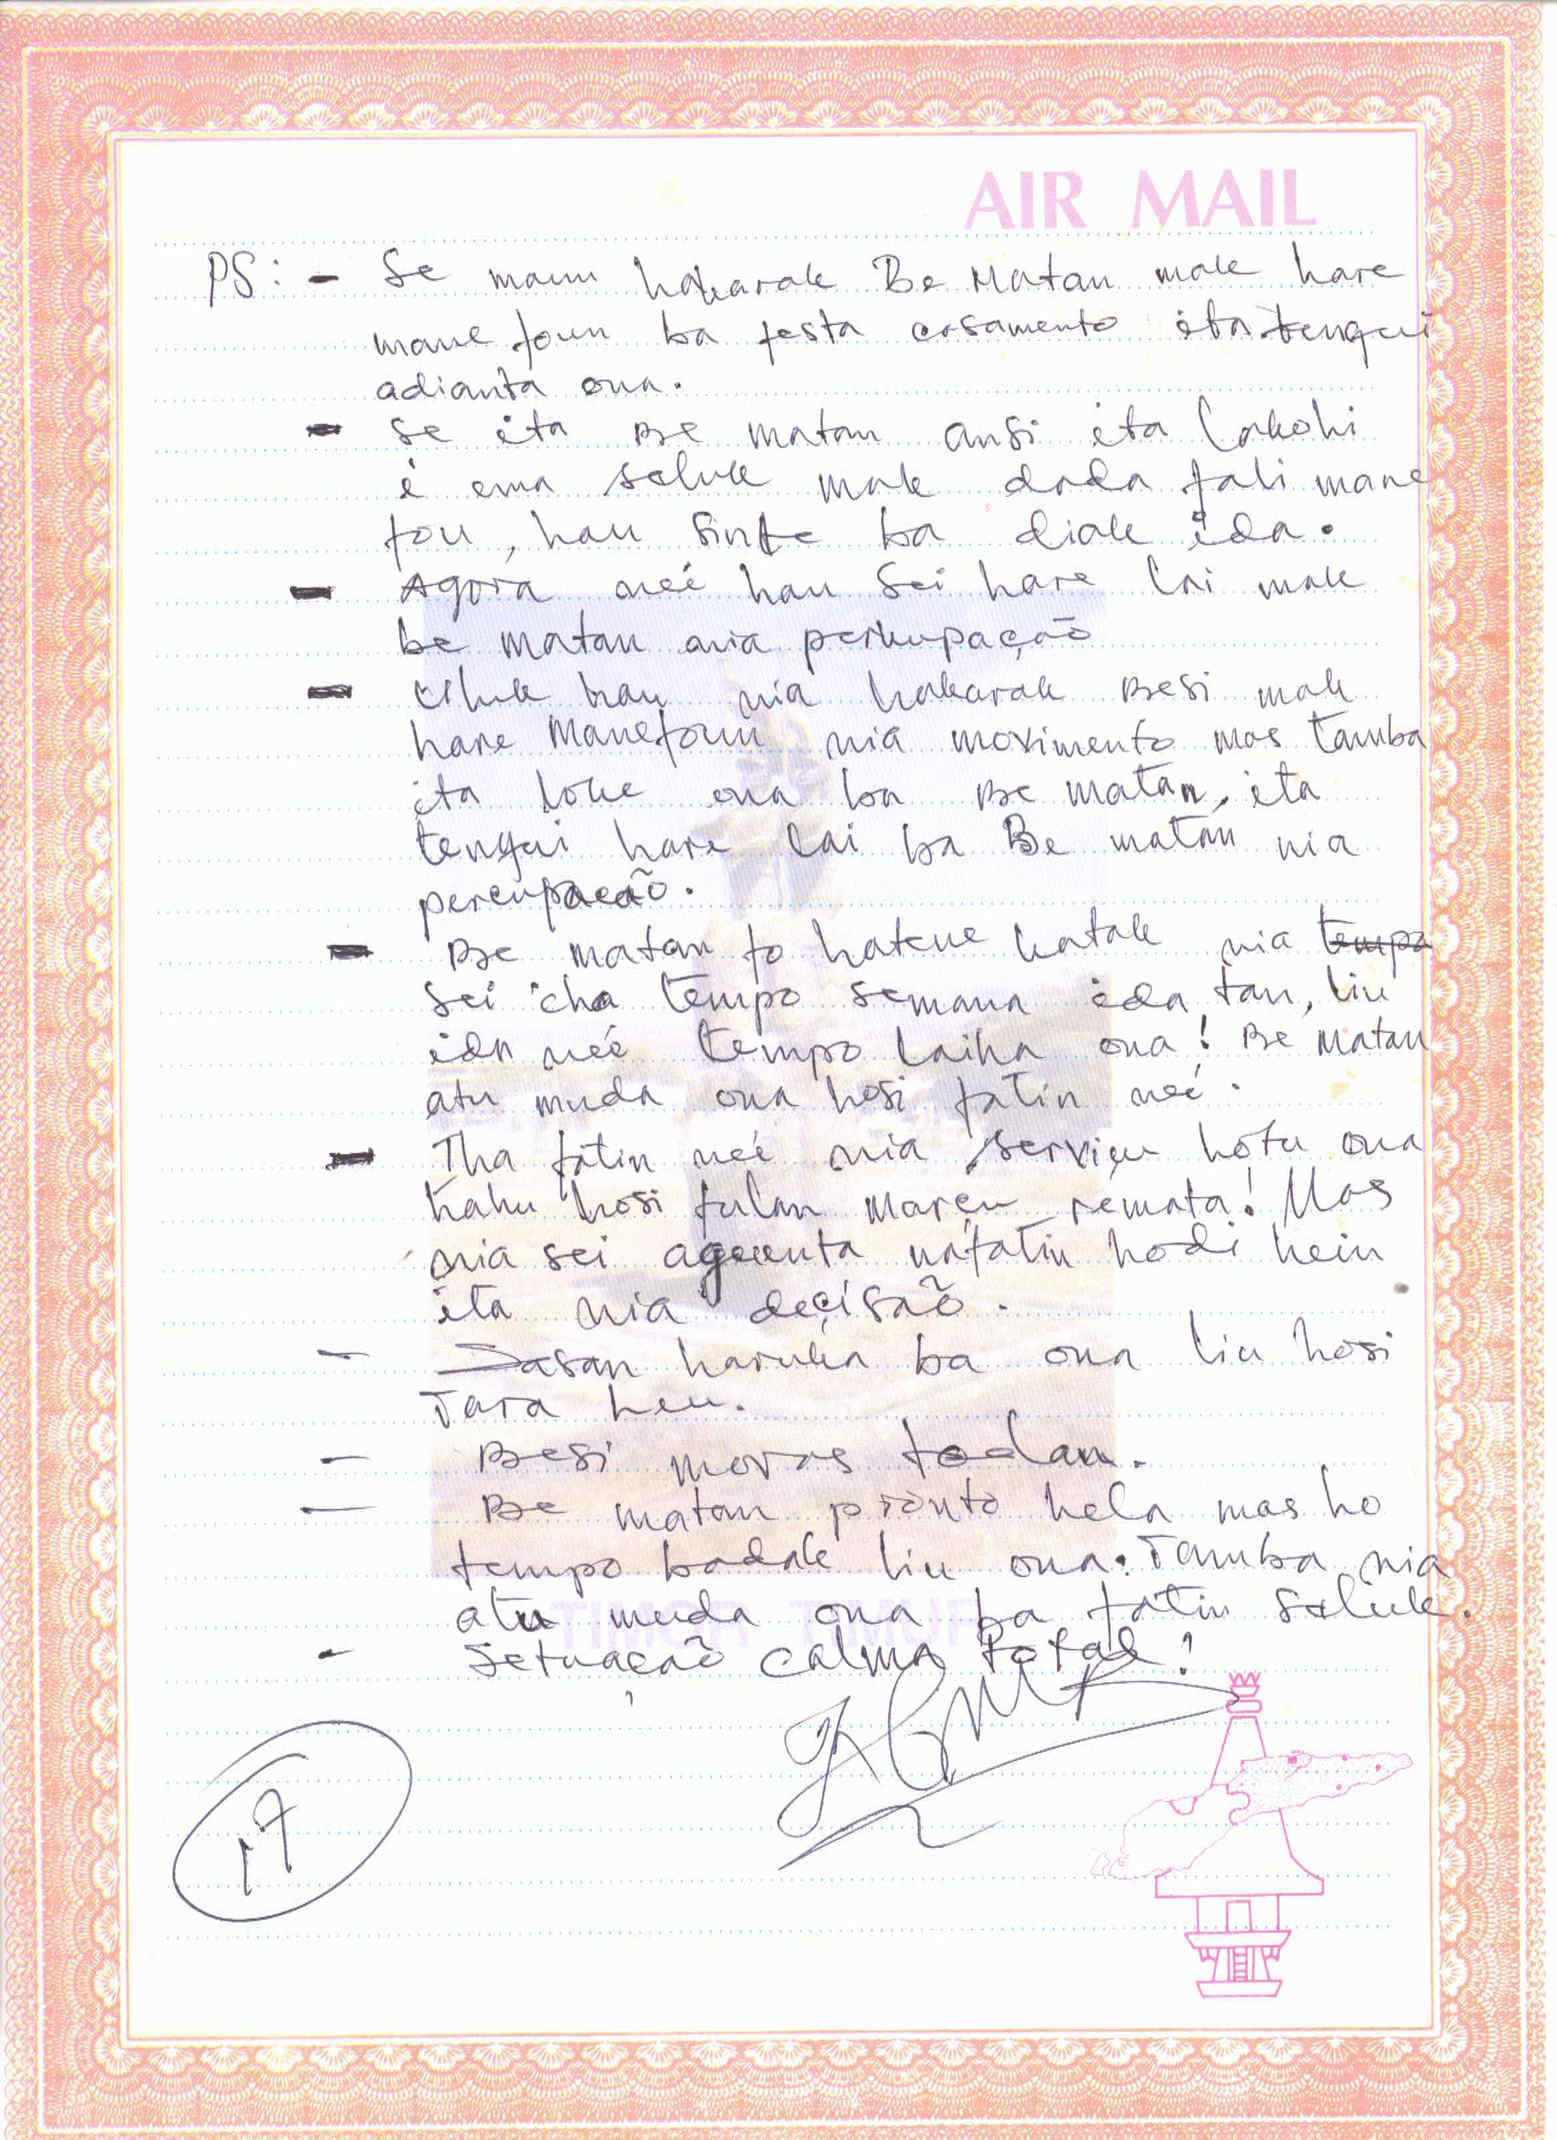 AIR MAIL
PS: - Se maun hakarak Be Matan mak hare
mane foun ba festa casamento ita tengui
adianta ona.
- Se ita Be matan ansi ita lakohi
é ema seluk mak dada fali mane
fou, hau sinte ba diak ida.
- Agora neé hau sei hare lai mak
be matan nia perkupação
- Uluk hau nia hakarak Besi mak
hare Manefoun nia movimento mas tamba
ita loke ona ba Be matan, ita
tengui hare lai ba Be matan nia
percupacão.
- Be matan fo hatene katak nia tempo
sei iha tempo semana ida tan, liu
ida neé tempo laiha ona! Be Matan
atu muda ona hosi fatin neé.
- Iha fatin neé nia serviçu hotu ona
hahu hosi fulan Marçu remata! Mas
nia sei aguenta nafatin hodi hein
ita nia deçisão.
- Sasan haruka ba ona liu hosi
Tara heu.
- Besi moras todan.
- Be matan pronto hela mas ho
tempo badak liu ona. Tamba nia
atu muda ona ba fatin seluk.
- Setuação calma total!
TIMOR TIMUR
17